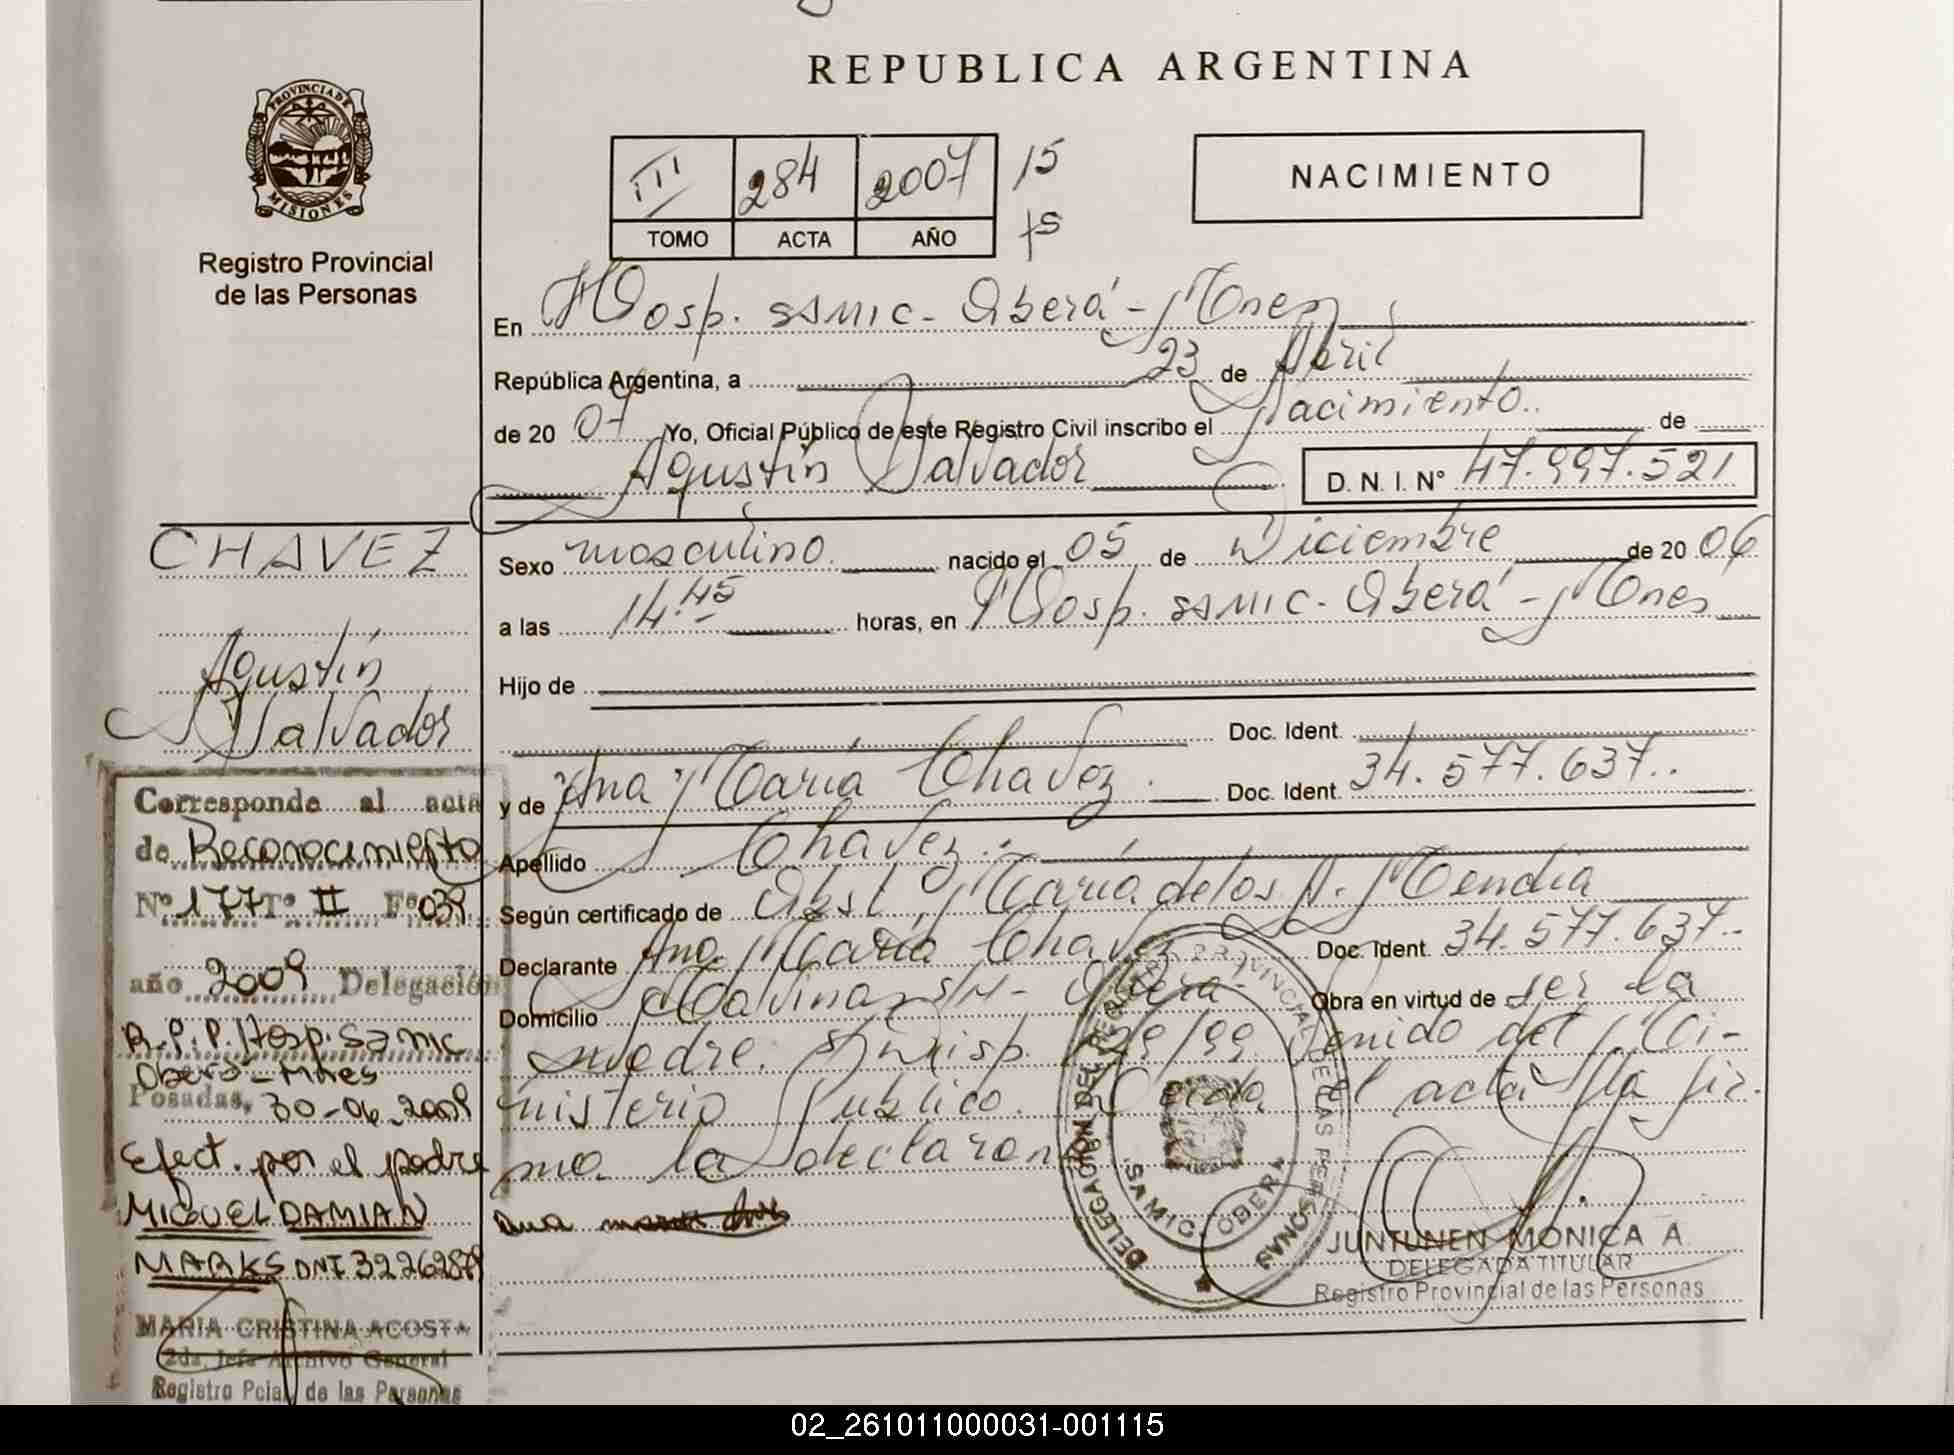 REPUBLICA ARGENTINA
PROVINCIA DE
MISIONES
Registro Provincial
de las Personas
III 284 2007 15
15
TOMO ACTA AÑO
NACIMIENTO
En Hosp. SAMIC - Oberá - Mnes
República Argentina, a 23 de Abril
de 20 07 Yo, Oficial Público de este Registro Civil inscribo el Nacimiento.. de
Agustín Salvador D. N. I. Nº 47.997.521
CHAVEZ
Agustín
Salvador
Sexo masculino. nacido el 05 de Diciembre de 20 06
a las 14.45 horas, en Hosp. SAMIC - Oberá - Mnes
Hijo de
Doc. Ident.
y de Ana María Chavez. Doc. Ident. 34.577.637..
Apellido Chavez.
Según certificado de Obst. María de los A. Mendia
Declarante Ana María Chavez Doc. Ident. 34.577.637..
Domicilio Malvinas S/N - Oberá - Obra en virtud de ser la
madre. S/Disp. 29/99 emido del Mi-
nisterio Público. Leida el acta la fir-
ma la declaran
Ana
Corresponde al acta
de Reconocimiento
Nº 177 Tº II Fº 039
año 2009 Delegación
R.P.P. Hosp. Samic
Oberá - Mnes
Posadas, 30-06-2009
Efect. por el padre
MIGUEL DAMIAN
MARKS DNI 32262879
MARIA CRISTINA ACOSTA
2da. Jefa Archivo General
Registro Pcial. de las Personas
DELEGACIÓN DEL REGISTRO PROVINCIAL DE LAS PERSONAS
SAMIC. OBERA
JUNTUNEN MONICA A.
DELEGADA TITULAR
Registro Provincial de las Personas
02_261011000031-001115